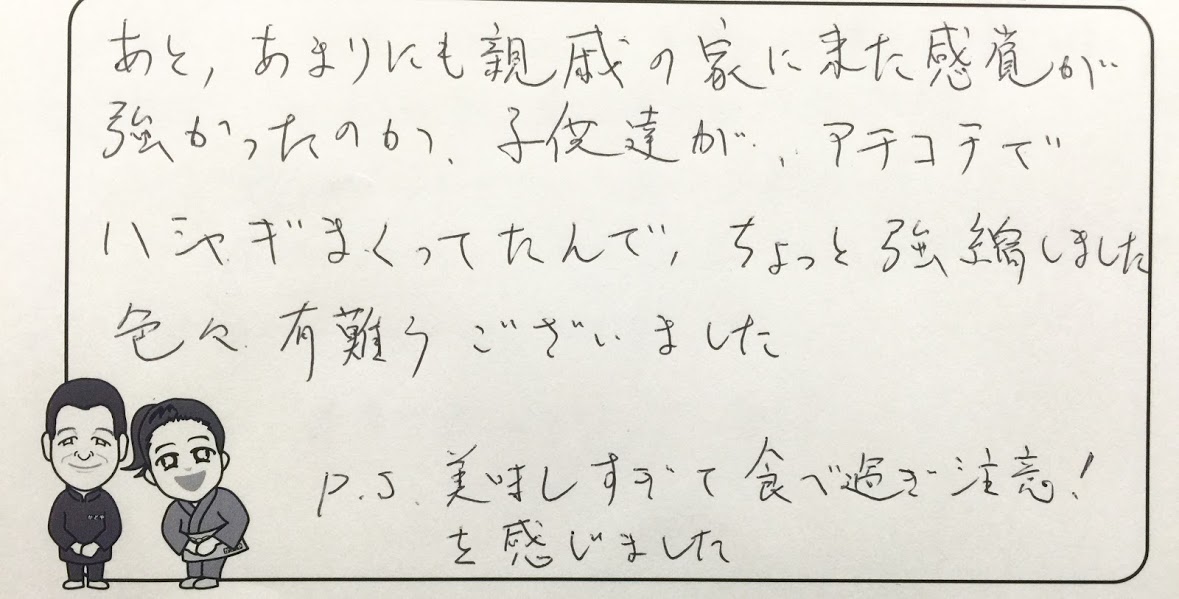 あと,あまりにも親戚の家に来た感覚が
強かったのか、子供達が、アチコチで
ハシャギまくってたんで,ちょっと強縮しました
色々有難うございました
P.S.美味しすぎて食べ過ぎ注意!
を感じました